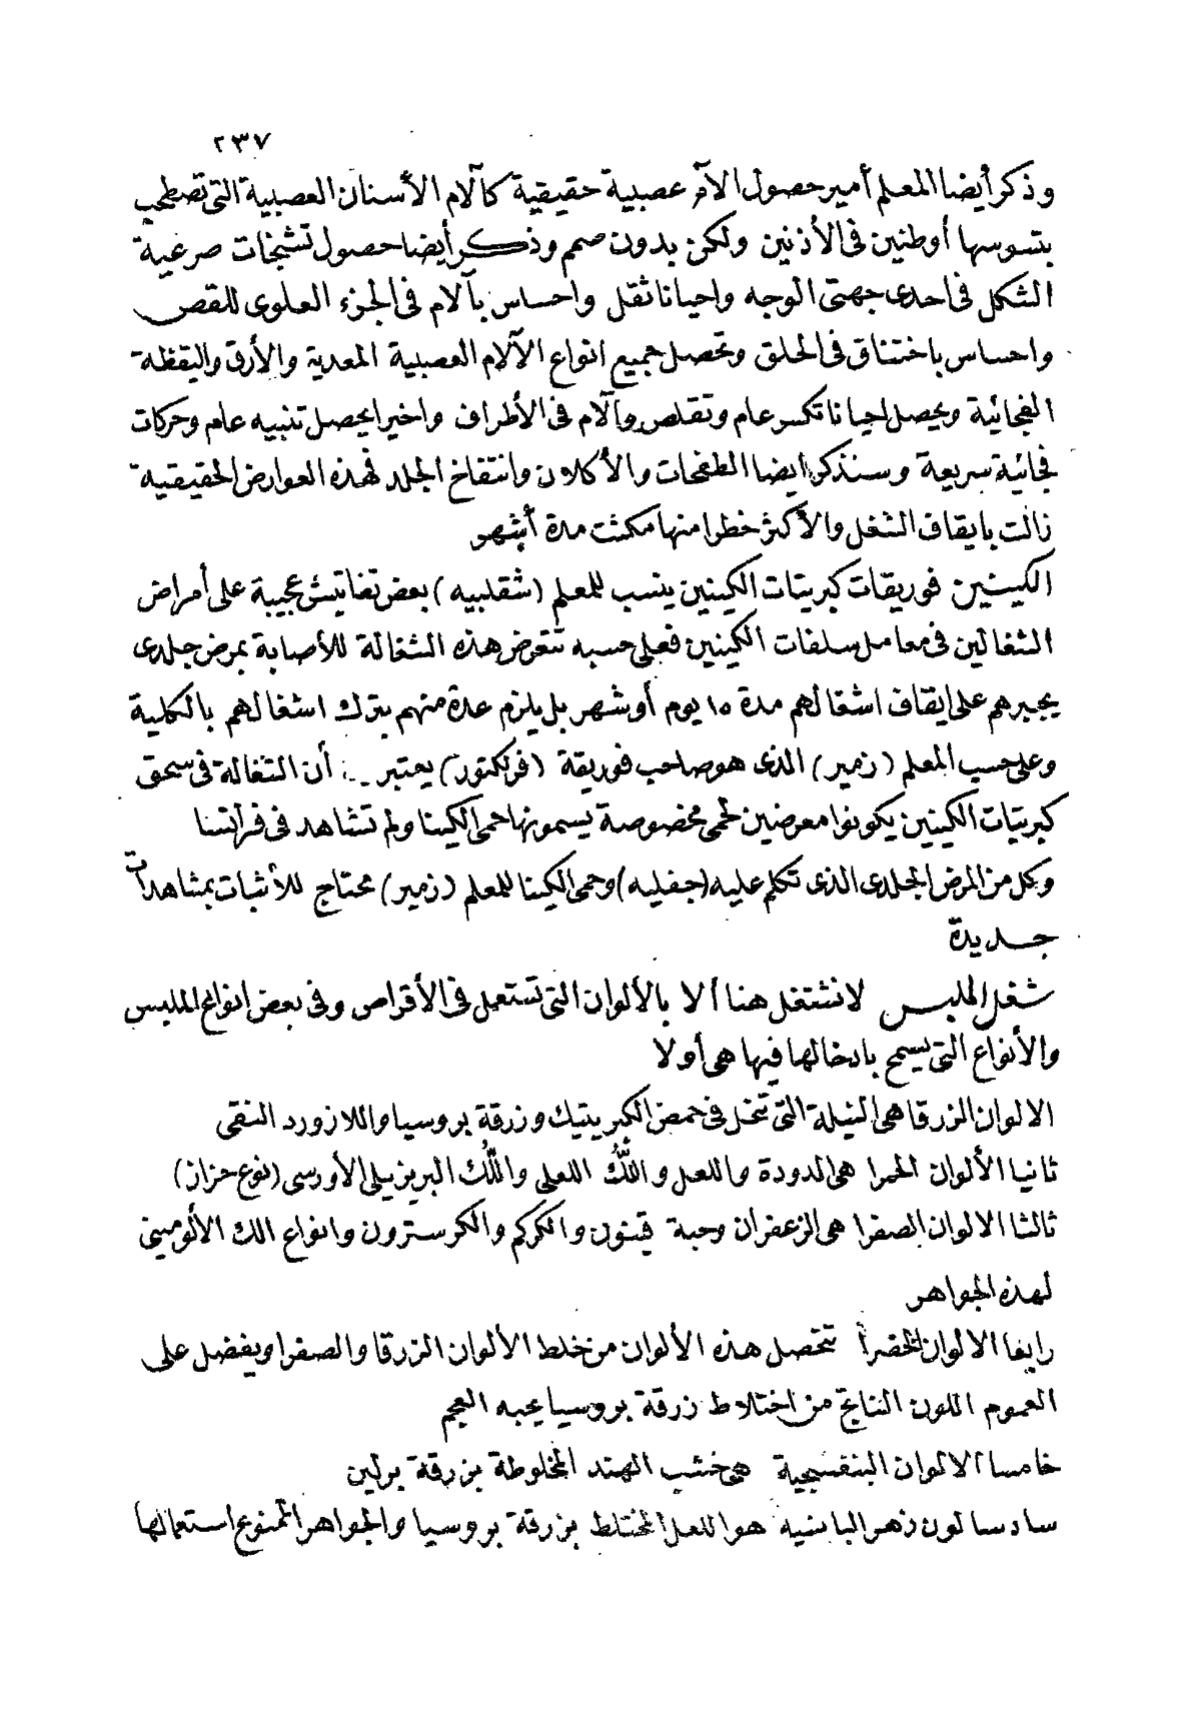 ٢٣٧
وذكر أيضا المعلم أمير حصول الآم عصبية حقيقية كآلام الأسنان العصبية التى تصطحب
بتسوسها أوطنين فى الأذنين ولكن بدون صمم وذكر أيضا حصول تشنجات صرعية
الشكل فى احدى جهتى الوجه واحيانا ثقل واحساس بآلام فى الجزء العلوى للقص
واحساس باختناق فى الحلق وتحصل جميع انواع الآلام العصبية المعدية والأرق واليقظة
الفجائية ويحصل احيانا تكسر عام وتقلص وآلام فى الأطراف واخيرا يحصل تنبيه عام وحركات
فجائية سريعة وسنذكر ايضا الطفحات والأكلان وانتفاخ الجلد فهذه العوارض الحقيقية
زالت بايقاف الشغل والأكثر خطرا منها مكثت مدة أشهر
الكينين فوريقات كبريتات الكينين ينسب للمعلم (شقلييه) بعض تفاتيش عجيبة على أمراض
الشغالين فى معامل سلفات الكينين فعلى حسبه تتعرض هذه الشغالة للأصابة بمرض جلدى
يجبرهم على ايقاف اشغالهم مدة ١٥ يوم أوشهر بل يلزم عدة منهم بترك اشغالهم بالكلية
وعلى حسب المعلم (زمير) الذى هو صاحب فوريقة (فرنكتور) يعتبر أن الشغالة فى سحق
كبريتات الكينين يكونوا معرضين لحمى مخصوصة يسمونها حمى الكينا ولم تشاهد فى فرانسا
وكل من المرض الجلدى الذى تكلم عليه (جفليه) وحمى الكينا للمعلم (زمير) محتاج للأثبات بمشاهدات
جديدة
شغل الملبس لانشتغل هنا ألا بالألوان التى تستعمل فى الأقراص وفى بعض انواع الملبس
والأنواع التى يسمح بادخالها فيها هى أولا
الالوان الزرقا هى النيلة التى تنحل فى حمض الكبريتيك وزرقة بروسيا واللازورد النقى
ثانيا الألوان الحمرا هى الدودة واللعل واللّك اللعلى واللّك البريزيلى الأورسى (نوع حزاز)
ثالثا الالوان الصفرا هى الزعفران وحبة فينون والكركم والكرسترون وانواع اللك الألومينى
لهذه الجواهر
رابعا الالوان الخضرأ تتحصل هذه الألوان من خلط الألوان الزرقا والصفرا ويفضل على
العموم اللون الناتج من اختلاط زرقة بروسيا بحبه العجم
خامسا الالوان البنفسجية هى خشب الهند المخلوطة بزرقة برلين
سادسا لون زهر البانسيه هو اللعل المختلط بزرقة بروسيا والجواهر الممنوع استعمالها